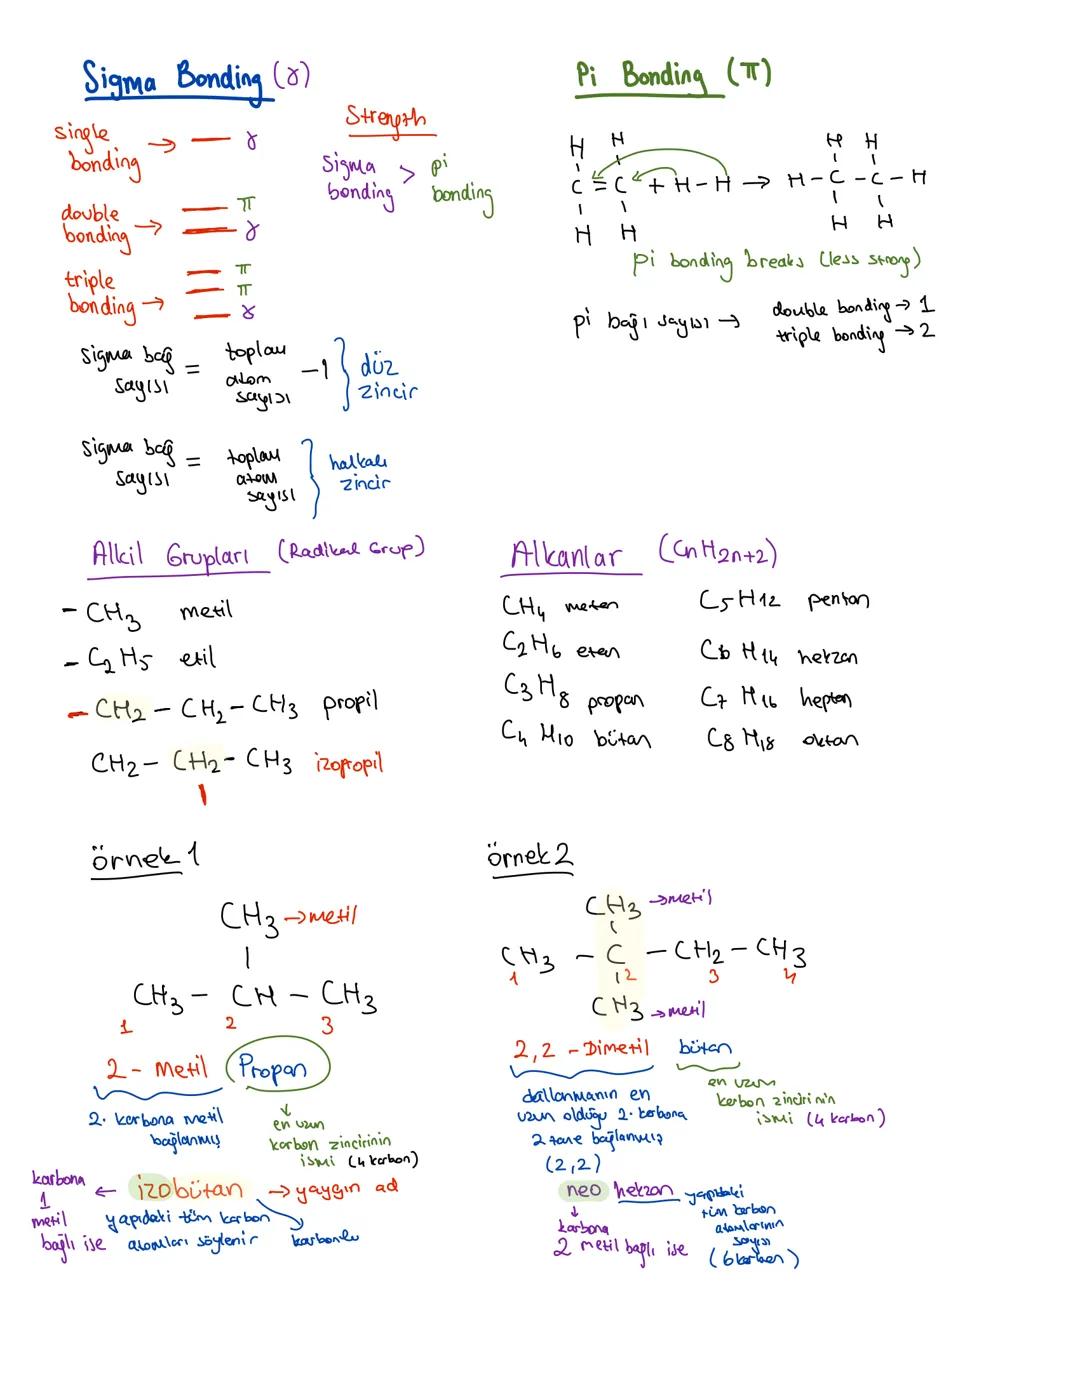 Sigma Bonding (γ)
single bonding → — γ
double bonding → π γ
triple bonding → π π γ
Strength
Sigma bonding > pi bonding
Sigma bağ sayısı = toplam atom sayısı -1 } düz zincir
Sigma bağ sayısı = toplam atom sayısı } halkalı zincir
Pi Bonding (π)
H H
C = C + H-H → H-C-C-H
H H
H H
H H
pi bonding breaks (less strong)
pi bağı sayısı → double bonding → 1
triple bonding → 2
Alkil Grupları (Radikal Grup)
- CH3 metil
- C2H5 etil
- CH2 - CH2 - CH3 propil
CH2 - CH2 - CH3 izopropil
Alkanlar (CnH2n+2)
CH4 metan
C2H6 etan
C3H8 propan
C4H10 bütan
C5H12 pentan
C6H14 hekzan
C7H16 heptan
C8H18 oktan
örnek 1
CH3 → metil
CH3 - CH - CH3
1 2 3
2 - Metil Propan
2. karbona metil
bağlanmış
en uzun
karbon zincirinin
ismi (4 karbon)
karbona
1
metil
bağlı ise
← izobütan → yaygın ad
yapıdaki tüm karbon
atomları söylenir
karbonlu
örnek 2
CH3 → metil
CH3 - C - CH2 - CH3
1 2 3 4
CH3 → metil
2,2 - Dimetil bütan
dallanmanın en
uzun olduğu 2. karbona
2 tane bağlanmış
(2,2)
en uzun
karbon zincirinin
ismi (4 karbon)
neo hekzan
karbona
2 metil bağlı ise
yapıdaki
tüm karbon
atomlarının
sayısı
(6 karbon)